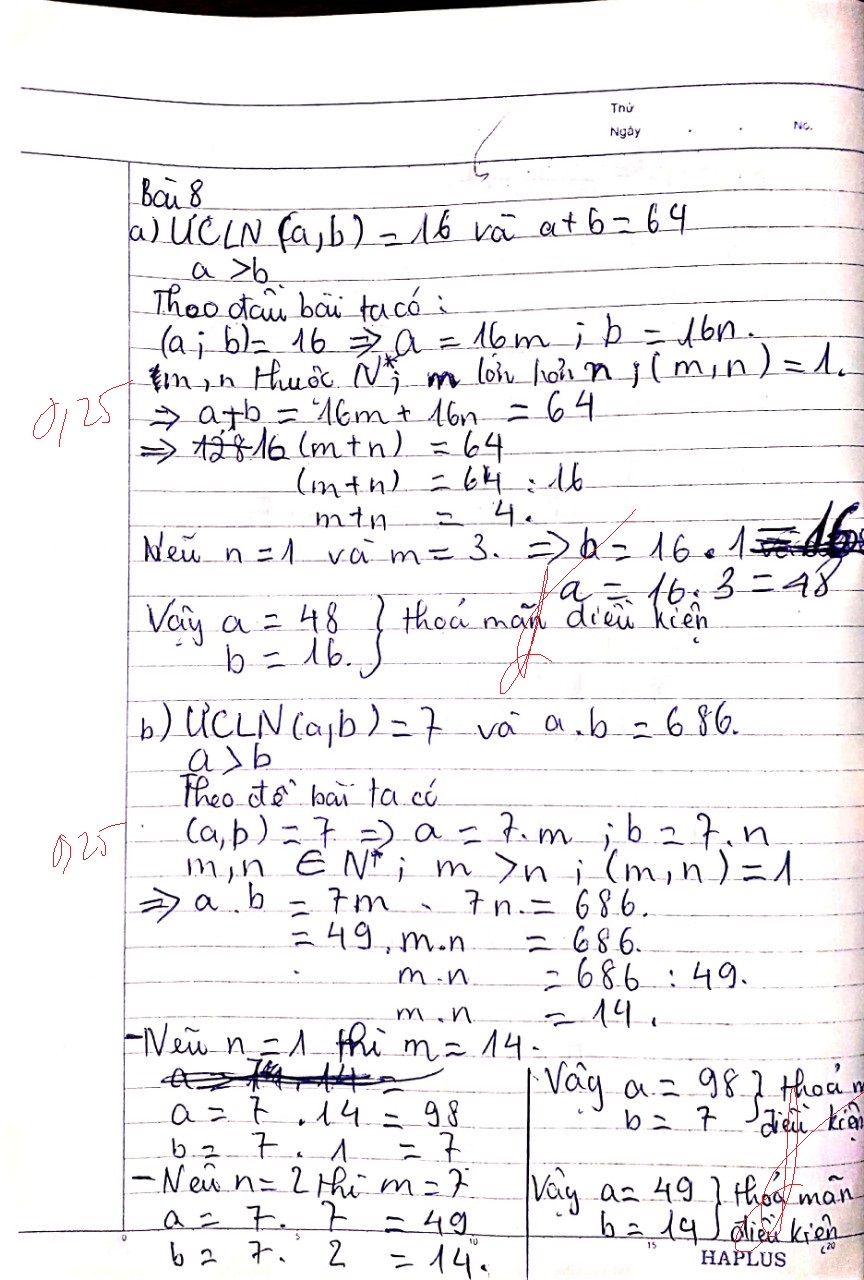 Thứ
Ngày . . No.
Bài 8
a) ƯCLN (a,b) = 16 và a+b = 64
a > b
Theo đầu bài ta có :
(a ; b) = 16 => a = 16m ; b = 16n.
m,n thuộc N* ; m lớn hơn n ; (m,n) = 1.
0,25
=> a+b = 16m + 16n = 64
=> 16 (m+n) = 64
(m+n) = 64 : 16
m+n = 4.
Nếu n = 1 và m = 3. => b = 16 . 1 = 16
a = 16 . 3 = 48
Vậy a = 48 } thoả mãn điều kiện
b = 16.
b) ƯCLN (a,b) = 7 và a.b = 686.
a > b
Theo đề bài ta có
0,25
(a,b) = 7 => a = 7.m ; b = 7.n
m,n ∈ N* ; m > n ; (m,n) = 1
=> a.b = 7m . 7n. = 686.
= 49.m.n = 686.
m.n = 686 : 49.
m.n = 14.
- Nếu n = 1 thì m = 14.
a = 7 . 14 = 98
b = 7 . 1 = 7
- Nếu n = 2 thì m = 7
a = 7 . 7 = 49
b = 7 . 2 = 14.
Vậy a = 98 } thoả
b = 7 điều kiện
Vậy a = 49 } thoả mãn
b = 14 điều kiện
0 5 10 15 20
HAPLUS